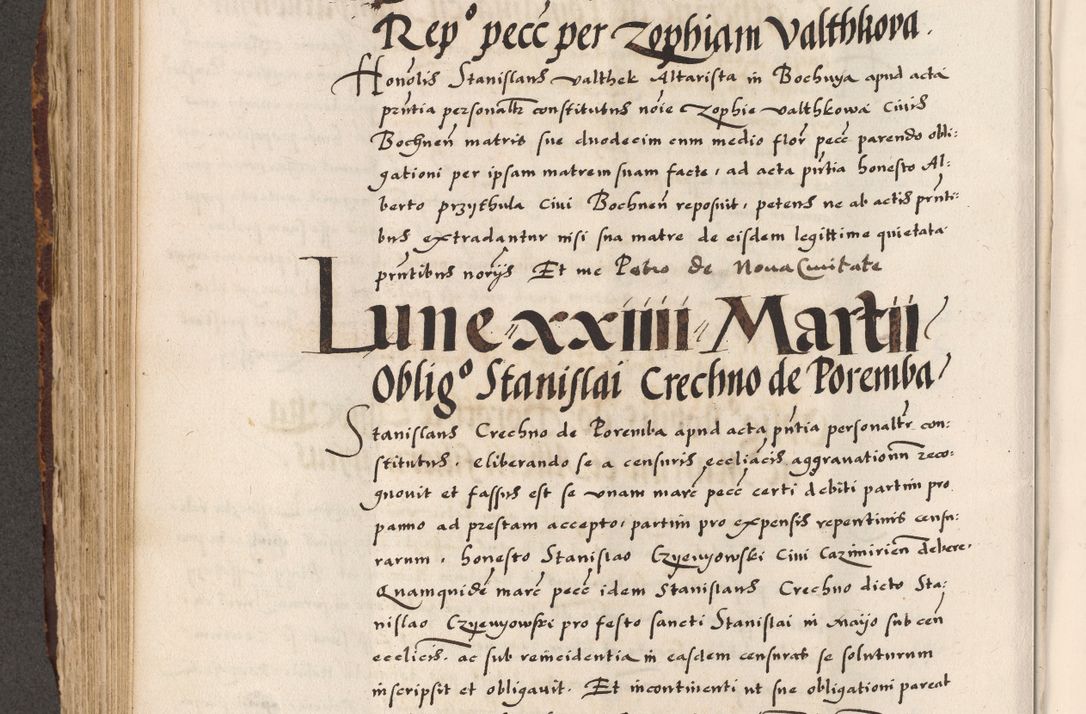 Rep⁰ pecc̄ per Zophiam Valthkova.
Honolis Stanislaus Valthek Altarista in Bochnya apud acta
pn̄tia personalr constitutus noīe Zophie Valthkowa Civis
Bochneñ matris sue duodecim cum medio flor̄ pecc̄ parendo obli:
gationi per ipsam matrem suam facte, ad acta pn̄tia honesto Al:
berto przythula Civi Bochneñ reposuit, petens ne ab actis pn̄ti:
bus extradantur nisi sua matre de eisdem legittime quietata
pn̄tibus norijs Et me Petro de Nova Civitate
Lune xxiiii Martii
Oblig⁰ Stanislai Crechno de Poremba
Stanislaus Crechno de Poremba apud acta pn̄tia personalr con:
stitutus, eliberando se a censuris ecclīacis aggravationū reco:
gnovit et fassus est se unam marc̄ pecc̄ certi debiti partim pro
panno ad prestam accepto, partim pro expensis repentinis censu:
rarum, honesto Stanislao Czyenyowski Civi Cazimirień debere,
Quamquidē marc̄ pecc̄ idem Stanislaus Crechno dicto Sta:
nislao Czyenyowski pro festo sancti Stanislai in Maijo sub ceñ
ecclicis, ac sub reincidentia in easdem censuras se soluturum
inscripsit et obligavit. Et incontinenti ut sue obligationi pareat